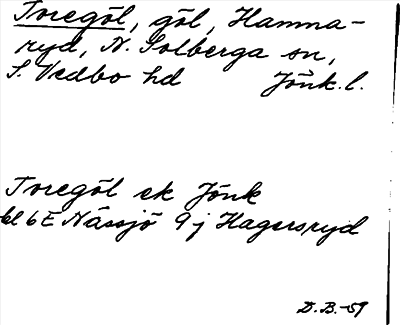 Toregöl, göl, Hamma-
ryd, N. Solberga sn,
S. Vedbo hd Jönk. l.
Toregöl ek Jönk
bl 6E Nässjö 9j Hagersryd
D.B. -59